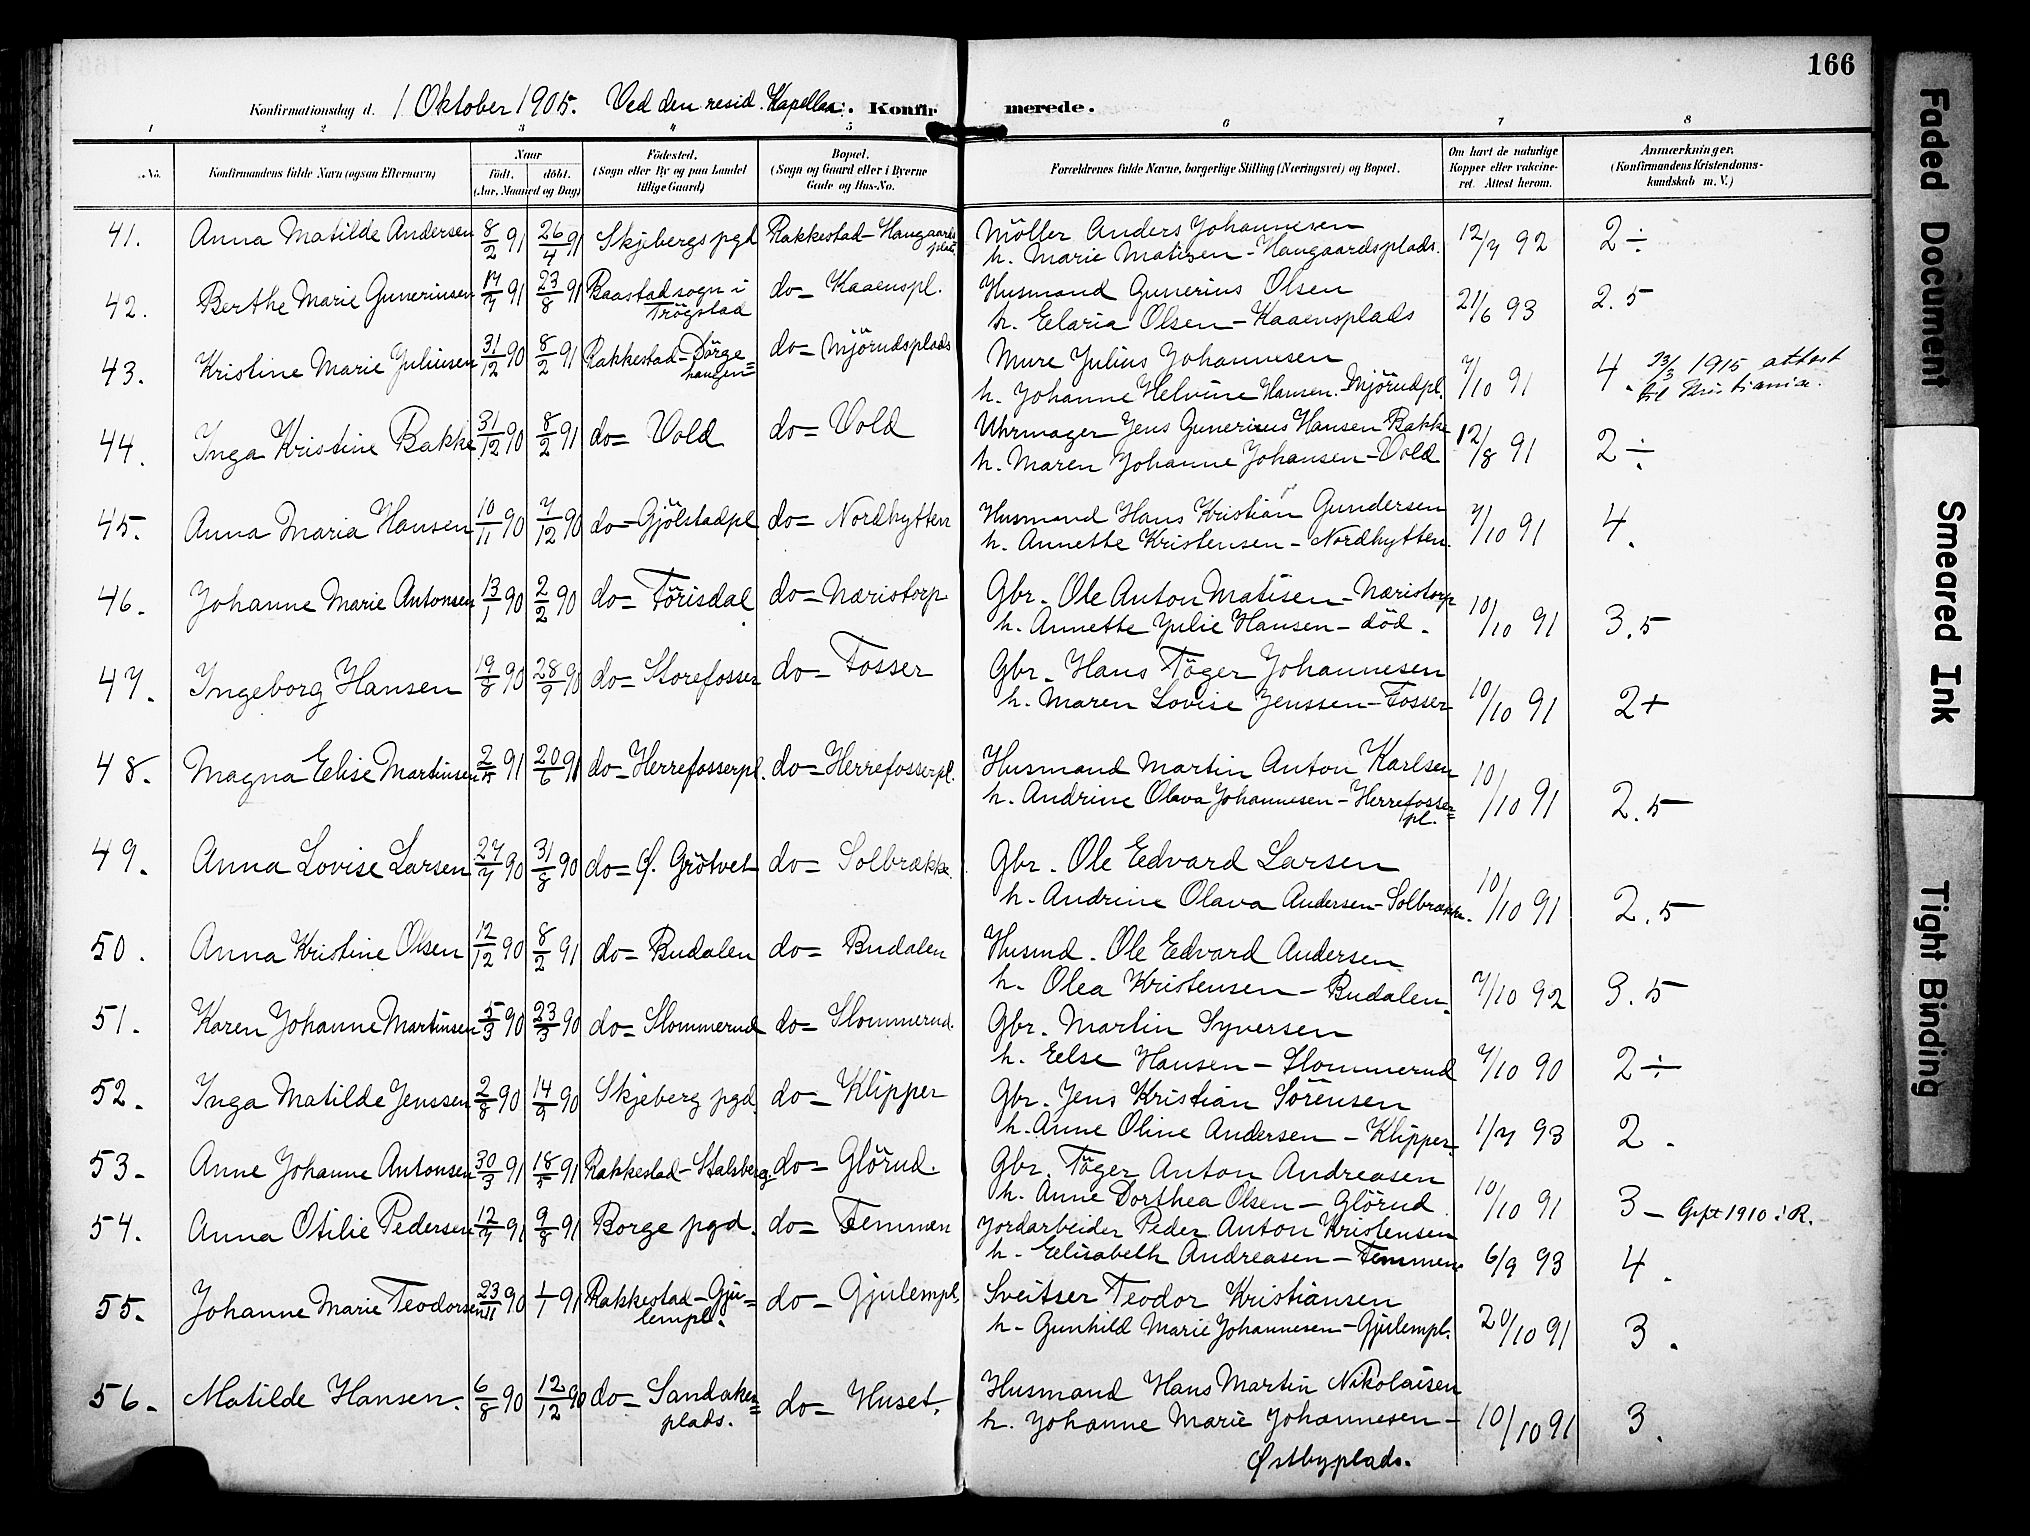 166
Konfirmationsdag d. 1 Oktober 1905. Ved den resid. Kapellan: Konfirmerede.
1 2 3 4 5 6 7 8
No. Konfirmandens fulde Navn (ogsaa Efternavn) Naar Født. døbt. (Aar, Maaned og Dag) Fødested. (Sogn eller By og paa Landet tillige Gaard) Bopæl. (Sogn og Gaard eller i Byerne Gade og Hus-No. Forældrenes fulde Navne, borgerlige Stilling (Næringsvei) og Bopæl. Om havt de naturlige Kopper eller vaccineret. Attest herom. Anmærkninger. (Konfirmandens Kristendomskundskab m. V.)
41. Anna Matilde Andersen 8/2 91 26/4 91 Skjebergs pgd Rakkestad - Haugaards plds. Möller Anders Johannesen
h. Marie Matisen - Haugaardsplads. 12/7 92 2 ÷
42. Berthe Marie Guneriusen 17/7 91 23/8 91 Baastad sogn i Trögstad do - Kaaenspl. Husmand Gunerius Olsen
h. Elaria Olsen - Kaaensplads 21/6 93 2.5
43. Kristine Marie Juliusen 31/12 90 8/2 91 Rakkestad - Dörge haugen= do= Mjörudsplads Mure Julius Johannesen
h. Johanne Helvine Hansen. Mjörudpl. 7/10 91 4. 13/3 1915 attest
til Kristiania.
44. Inga Kristine Bakke 31/12 90 8/2 91 do= Vold do= Vold Uhrmager Jens Gunerius Hansen Bakke
h. Maren Johanne Johansen - Vold 12/8 91 2 ÷
45. Anna Maria Hansen 10/11 90 7/12 90 do - Gjölstadpl do= Nordhytten Husmand Hans Kristian Gundersen
h. Annette Kristensen - Nordhytten. 7/10 91 4.
46. Johanne Marie Antonsen 13/1 90 2/2 90 do= Törisdal do= Næristorp Gbr. Ole Anton Matisen - Næristorp
h. Annette Julie Hansen - död. 10/10 91 3.5
47. Ingeborg Hansen 19/8 90 28/9 90 do= Storefosser do= Fosser Gbr. Hans Töger Johannesen
h. Maren Lovise Jenssen - Fosser 10/10 91 2+
48. Magna Elise Martinsen 2/5 91 20/6 91 do - Herrefosserpl. do= Herrefosserpl. Husmand Martin Anton Karlsen
h. Andrine Olava Johannesen - Herrefosser= pl. 10/10 91 2.5
49. Anna Lovise Larsen 27/7 90 31/8 90 do= Ø. Grötvet do= Solbrække. Gbr. Ole Edvard Larsen
h. Andrine Olava Andersen - Solbrække. 10/10 91 2.5
50. Anna Kristine Olsen 12/12 90 8/2 91 do= Budalen do= Budalen Husmd. Ole Edvard Andersen
h. Olea Kristensen - Budalen. 7/10 92 3.5
51. Karen Johanne Martinsen 5/3 90 23/3 90 do= Slommerud do= Slommerud. Gbr. Martin Syversen
h. Else Hansen - Slommerud 7/10 90 2 ÷
52. Inga Matilde Jenssen 2/8 90 14/9 90 Skjeberg pgd. do= Klipper Gbr. Jens Kristian Sörensen
h. Anne Oline Andersen - Klipper. 1/7 93 2.
53. Anne Johanne Antonsen 30/3 91 18/5 91 Rakkestad - Stalsberg. do= Glörud. Gbr. Töger Anton Andreasen
h. Anne Dorthea Olsen - Glörud. 10/10 91 3 - Gift 1910 i R.
54. Anna Otilie Pedersen 12/7 91 9/8 91 Borge pgd. do= Femmen Jordarbeider Peder Anton Kristensen
h. Elisabeth Andreasen - Femmen 6/9 93 4.
55. Johanne Marie Teodorsen 23/11 90 1/1 91 Rakkestad - Gju= lempl. do - Gjulempl. Sveitser Teodor Kristiansen
h. Gunhild Marie Johannesen - Gjulempl. 20/10 91 3.
56. Matilde Hansen. 6/8 90 12/12 90 do= Sandaker= plads. do= Huset. Husmand Hans Martin Nikolaisen
h. Johanne Marie Johannesen -
Østbyplads. 10/10 91 3.
Faded Document
Smeared Ink
Tight Binding